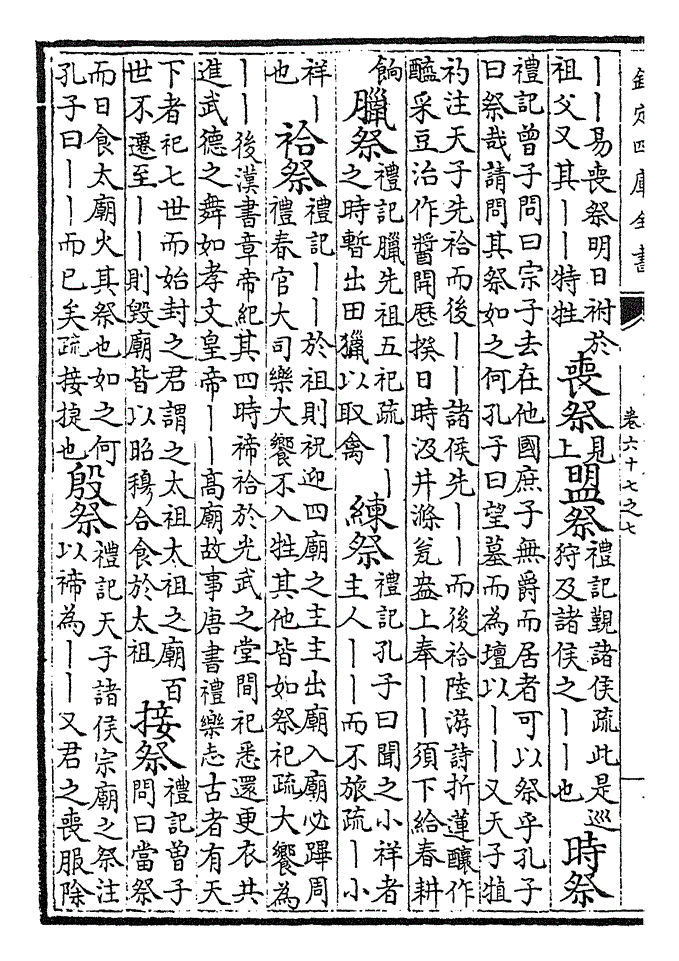 欽定四庫全書
卷六十七之七
——易喪祭明日祔於
祖父又其——特牲
喪祭
見
上
盟祭
禮記覲諸侯疏此是巡
狩及諸侯之——也
時祭
禮記曾子問曰宗子去在他國庶子無爵而居者可以祭乎孔子
曰祭哉請問其祭如之何孔子曰望墓而為壇以——又天子犆
礿注天子先祫而後——諸侯先——而後祫陸游詩折蓮釀作
醯采豆治作醬開厯揆日時汲井滌瓮盎上奉——須下給春耕
餉
臘祭
禮記臘先祖五祀疏——
之時暫出田獵以取禽
練祭
禮記孔子曰聞之小祥者
主人——而不旅疏——小
祥——
也
祫祭
禮記——於祖則祝迎四廟之主主出廟入廟必蹕周
禮春官大司樂大饗不入牲其他皆如祭祀疏大饗為
——後漢書章帝紀其四時禘祫於光武之堂間祀悉還更衣共
進武德之舞如孝文皇帝——高廟故事唐書禮樂志古者有天
下者祀七世而始封之君謂之太祖太祖之廟百
世不遷至——則毀廟皆以昭穆合食於太祖
接祭
禮記曾子
問曰當祭
而日食太廟火其祭也如之何
孔子曰——而已矣疏接捷也
殷祭
禮記天子諸侯宗廟之祭注
以禘為——又君之喪服除